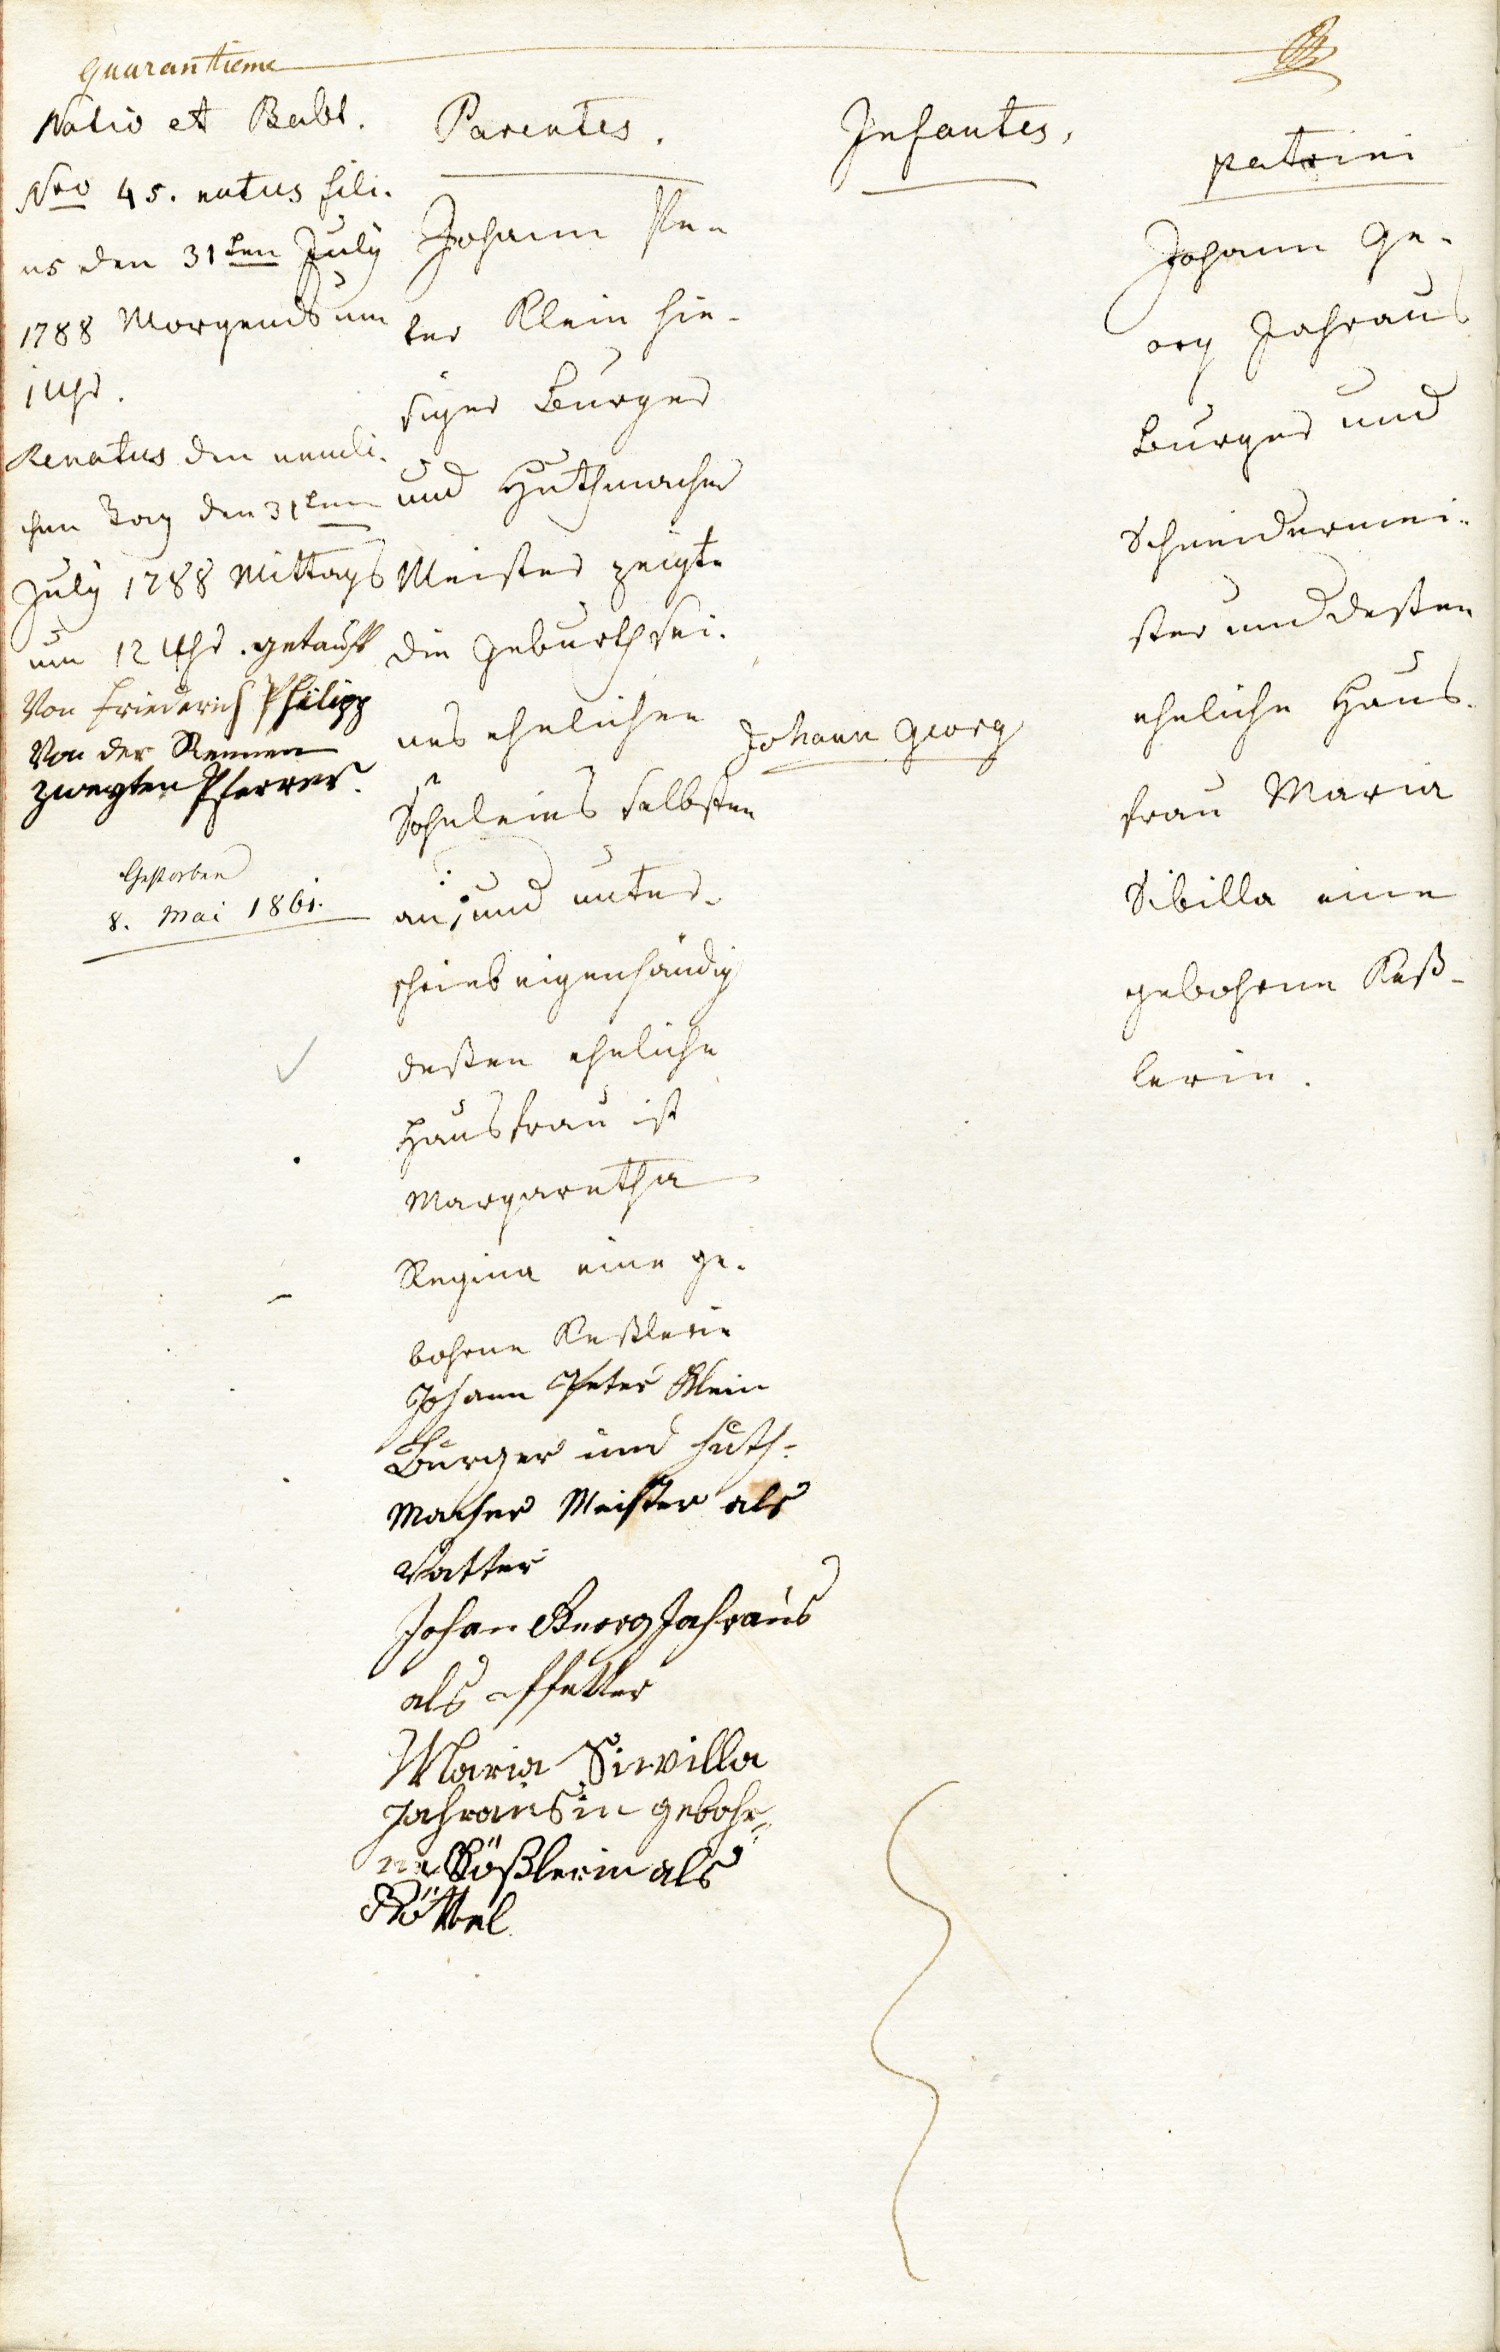 quarantieme
Natio et Babt.
Nro 45. natus fili-
us den 31ten July
1788 Morgends um
1 Uhr.
Renatus den nemli-
chen Tag den 31ten
July 1788 Mittags
um 12 Uhr. getauft
Von Friederich Philipp
Von der Rennen
zweyten Pfarrer.
Gestorben
8. Mai 1861.
Parentes.
Johann Pe-
ter Klein hie-
siger Burger
und Huthmacher
Meister zeigte
die Geburth sei-
nes ehelichen
Söhnleins selbsten
an; und unter-
schrieb eigenhändig
deßen eheliche
Hausfrau ist
Margaretha
Regina eine ge-
bohrne Keßlerin
Johann Peter Klein
Burger und Huth-
Macher Meister als
Vatter
Johan Georg Jahraus
als Pfetter
Maria Siwilla
Jahrausin gebohr-
ne Kößlerin als
Göttel
Infantes,
Johann Georg
patrini
Johann Ge-
org Jahraus
Burger und
Schneidermei-
ster und deßen
eheliche Haus-
frau Maria
Sibilla eine
gebohrne Keß-
lerin.